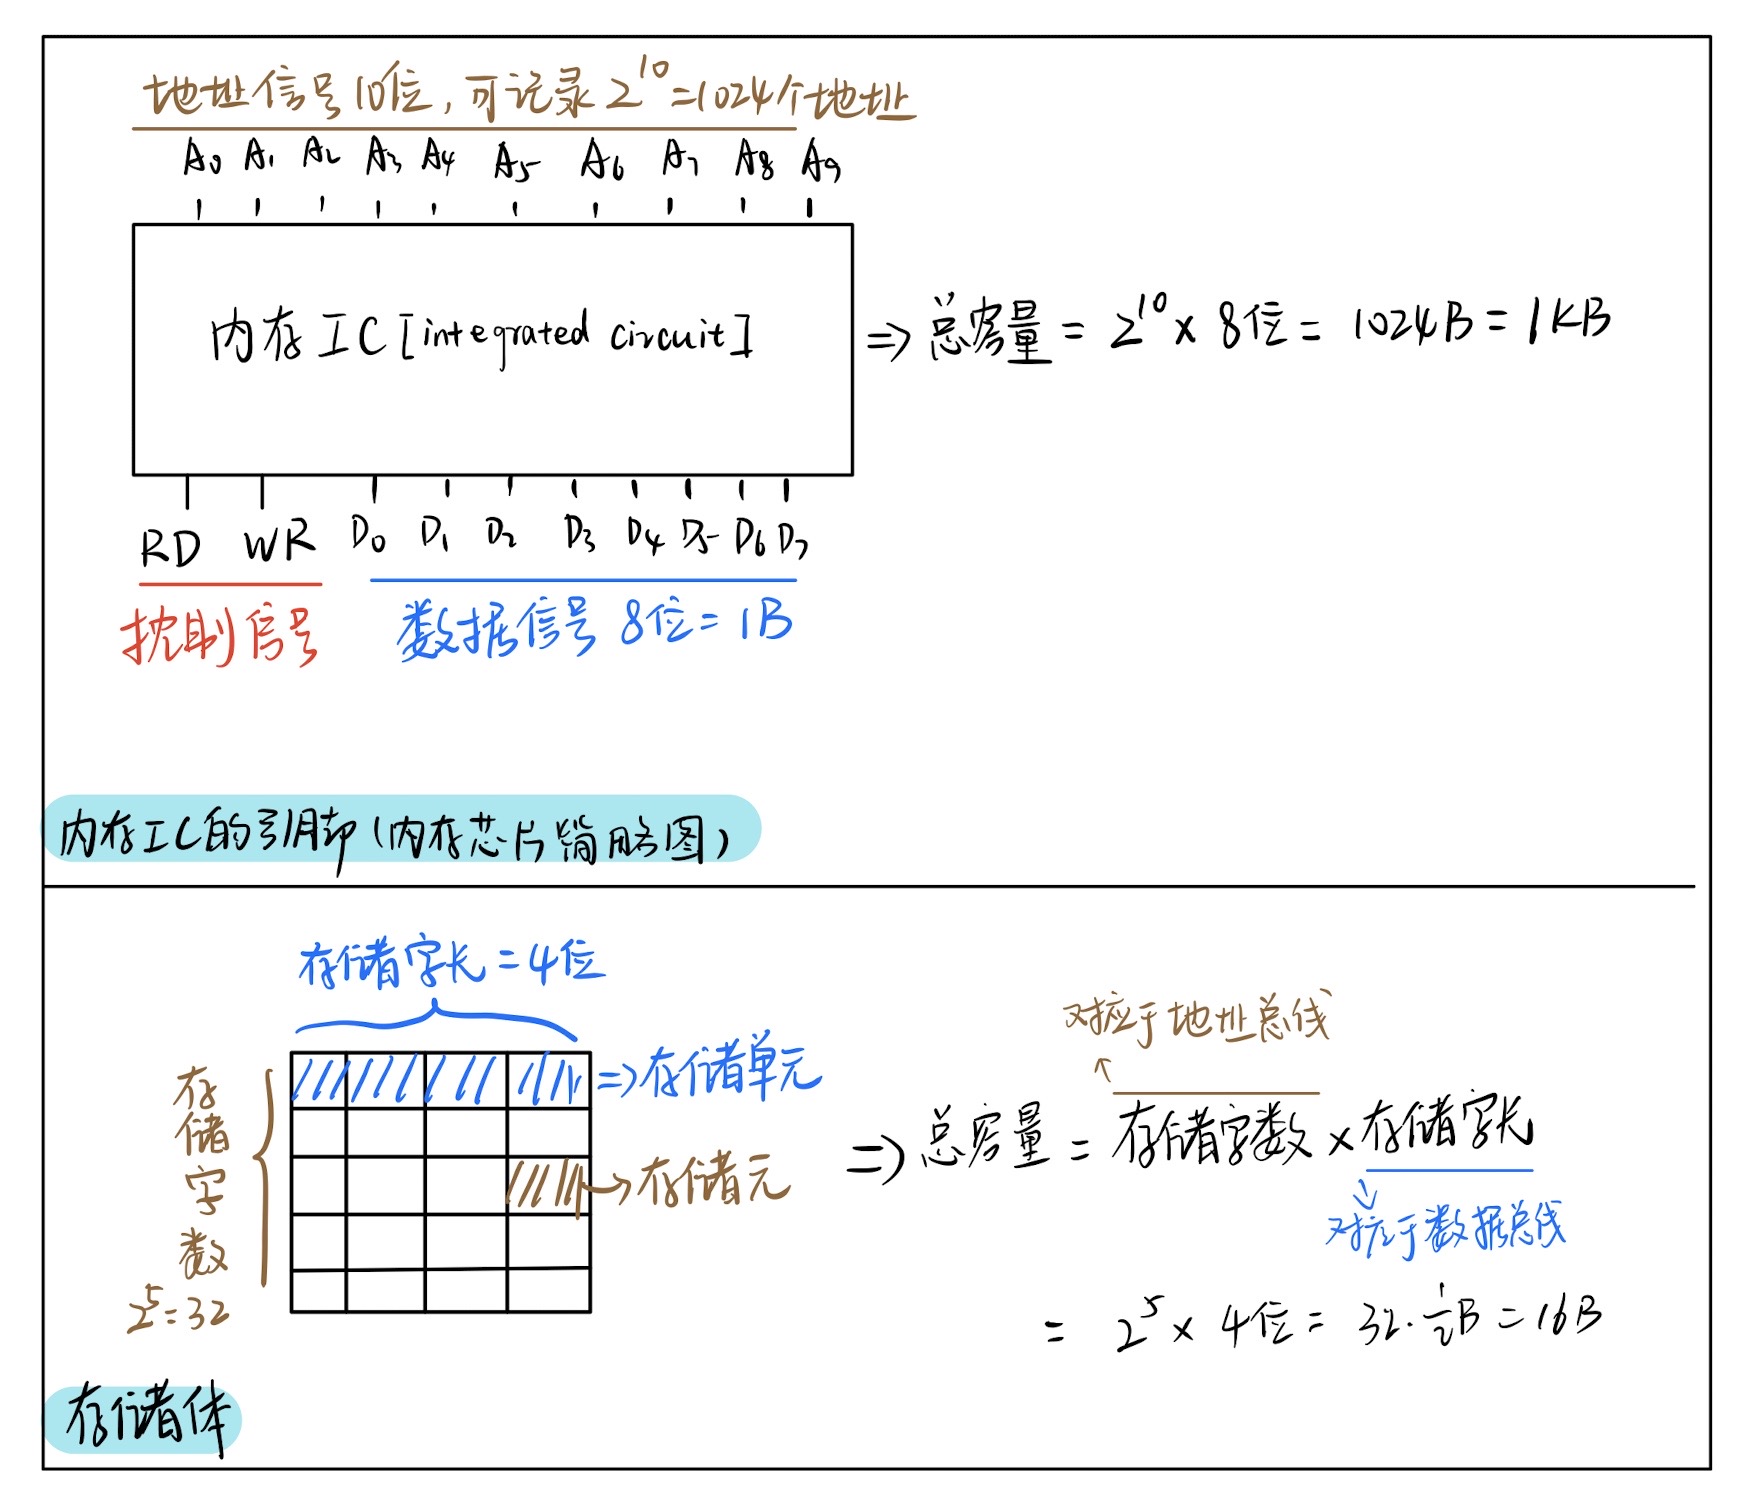 地址信号10位,可记录2^10=1024个地址
A0 A1 A2 A3 A4 A5 A6 A7 A8 A9
内存IC[integrated circuit]
=> 总容量 = 2^10 × 8位 = 1024B = 1KB
RD WR D0 D1 D2 D3 D4 D5 D6 D7
控制信号
数据信号 8位=1B
内存IC的引脚(内存芯片简略图)
存储字长=4位
=>存储单元
→存储元
存储字数
2^5=32
对应于地址总线
=> 总容量 = 存储字数×存储字长
对应于数据总线
= 2^5 × 4位 = 32·1/2B = 16B
存储体